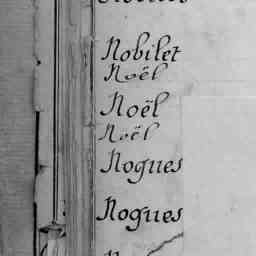 Nobilet
Noël
Noël
Noël
Nogues
Nogues